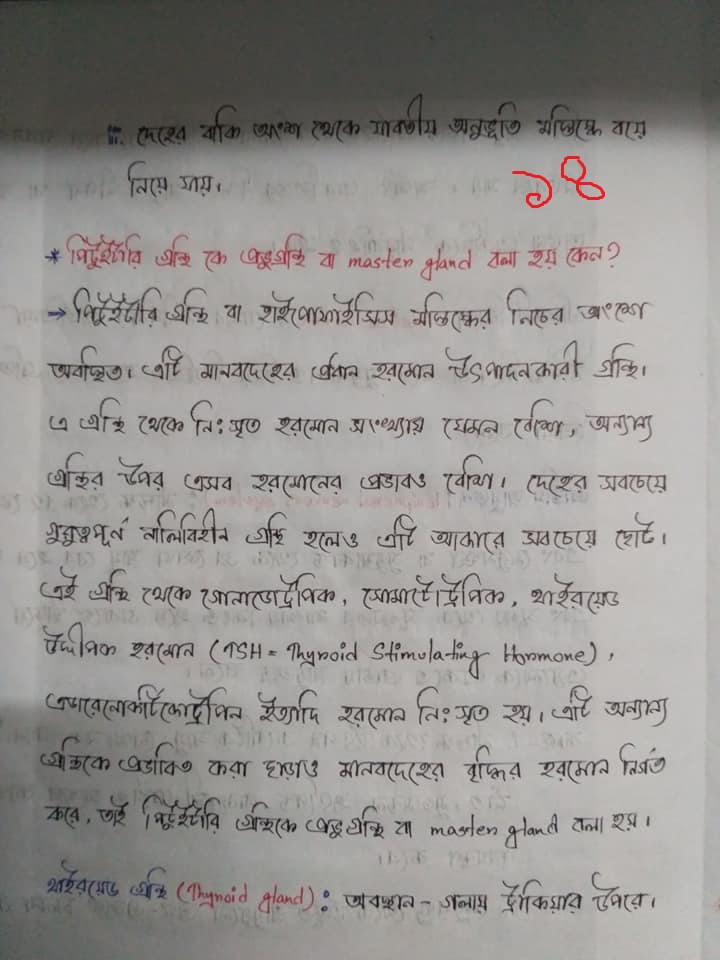 ii. দেহের বাকি অংশ থেকে যাবতীয় অনুভূতি মস্তিষ্কে বয়ে
নিয়ে যায়।
১৪
* পিটুইটারি গ্রন্থি কে প্রভুগ্রন্থি বা master gland বলা হয় কেন?
→ পিটুইটারি গ্রন্থি বা হাইপোফাইসিস মস্তিষ্কের নিচের অংশে
অবস্থিত। এটি মানবদেহের প্রধান হরমোন উৎপাদনকারী গ্রন্থি।
এ গ্রন্থি থেকে নিঃসৃত হরমোন সংখ্যায় যেমন বেশি, অন্যান্য
গ্রন্থির উপর এসব হরমোনের প্রভাবও বেশি। দেহের সবচেয়ে
গুরুত্বপূর্ন নালিবিহীন গ্রন্থি হলেও এটি আকারে সবচেয়ে ছোট।
এই গ্রন্থি থেকে গোনাডোট্রপিক, সোমাটোট্রপিক, থাইরয়েড
উদ্দীপক হরমোন (TSH = Thyroid Stimulating Hormone),
এডরেনোকর্টিকোট্রপিন ইত্যাদি হরমোন নিঃসৃত হয়। এটি অন্যান্য
গ্রন্থিকে প্রভাবিত করা ছাড়াও মানবদেহের বৃদ্ধির হরমোন নির্গত
করে, তাই পিটুইটারি গ্রন্থিকে প্রভুগ্রন্থি বা master gland বলা হয়।
থাইরয়েড গ্রন্থি (Thyroid gland): অবস্থান - গলায় ট্রাকিয়ার উপরে।